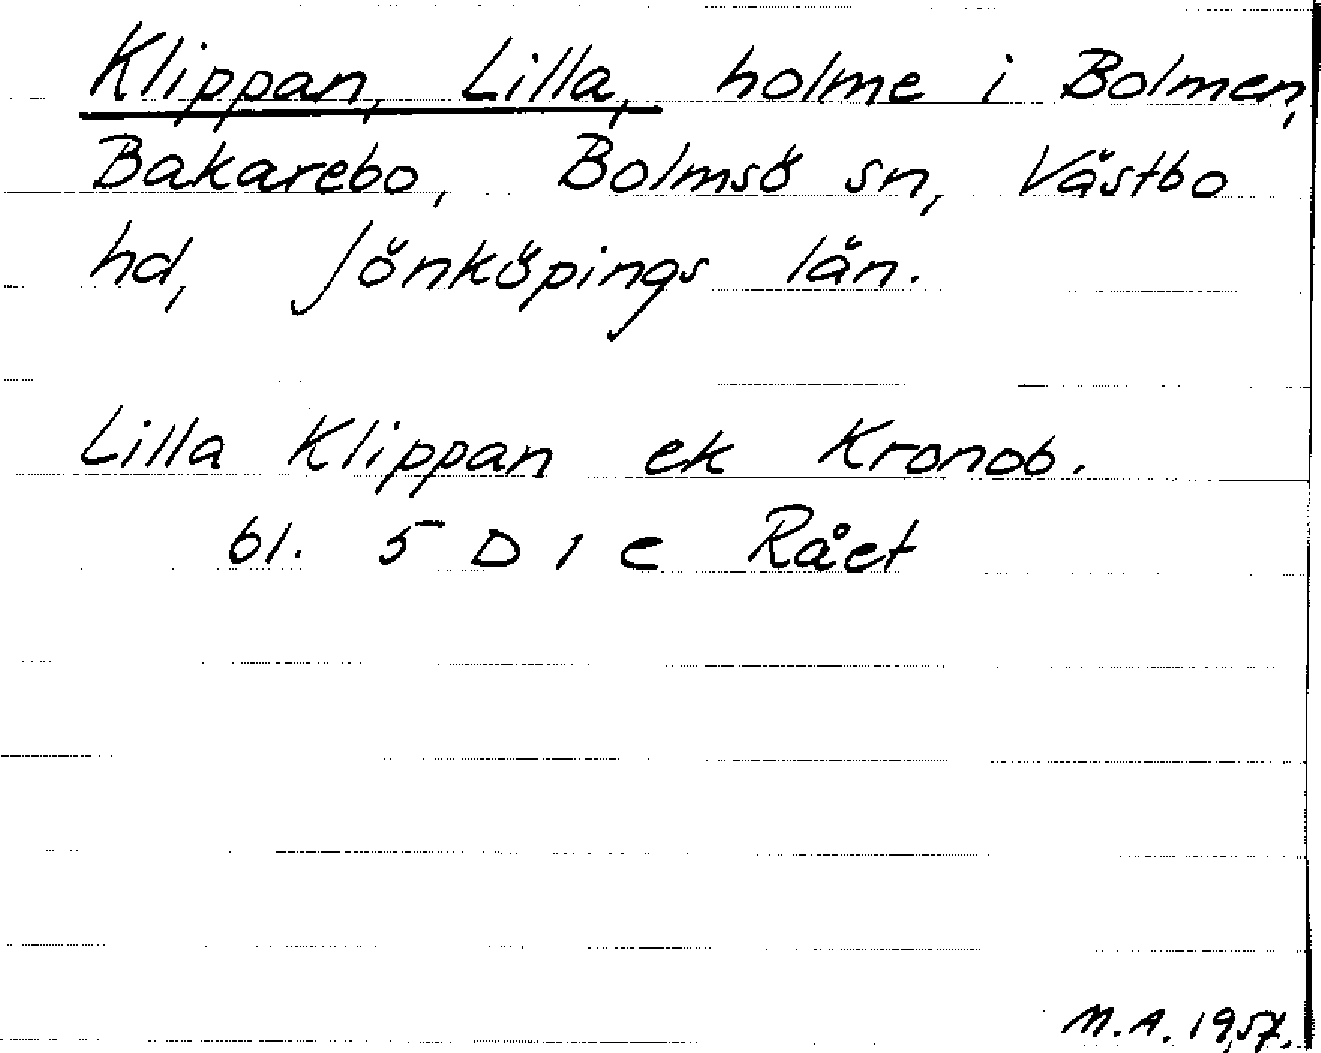 Klippan, Lilla, holme i Bolmen,
Bakarebo, Bolmsö sn, Västbo
hd, Jönköpings län.
Lilla Klippan ek Kronob.
bl. 5 D 1 c Rået
M.A. 1957.